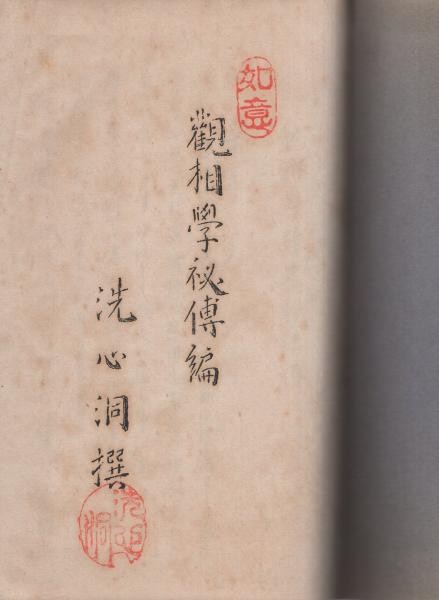 如意
觀相學祕傳編
洗心洞撰
洗心洞